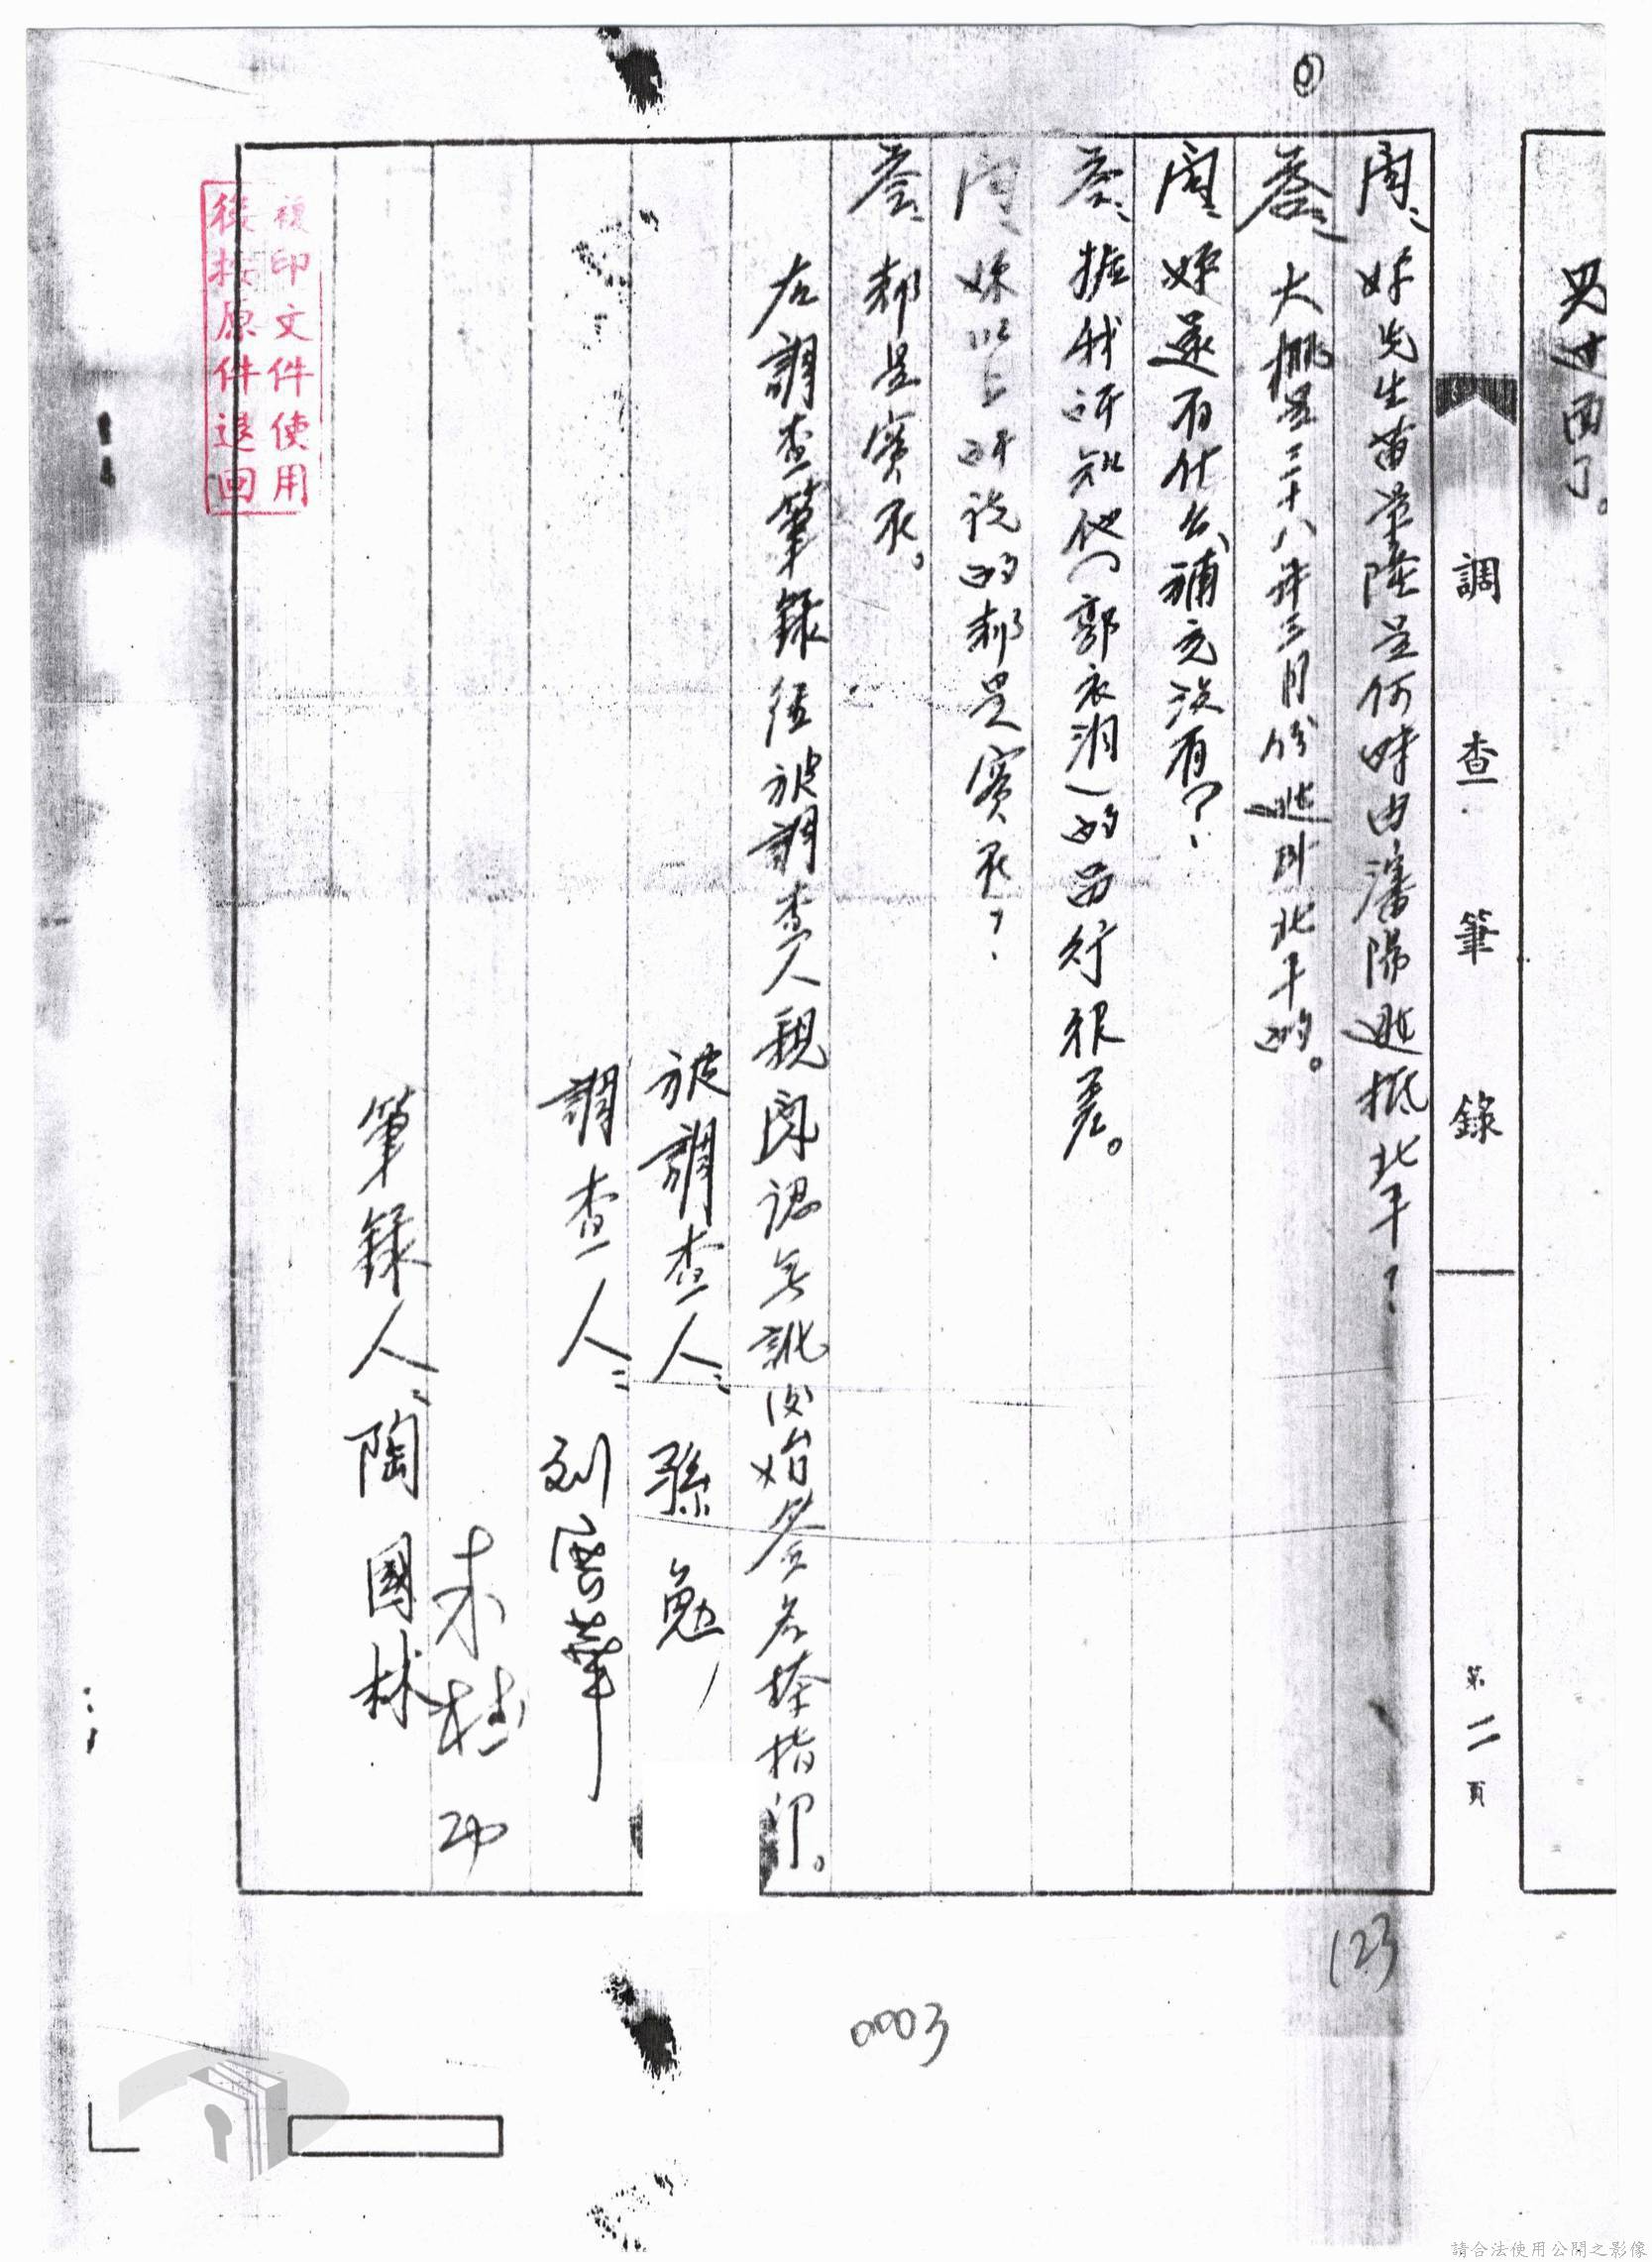 見过面了。
調查筆錄
第二頁
問：妳先生苗業陞是何時由瀋陽逃抵北平？
答：大概是三十八年三月份逃到北平的。
問：妳還有什么補充沒有？
答：據我所知他（郭衣洞）的品行很差。
問：妳以上所說的都是實在？
答：都是實在。
右調查筆錄經被調查人親閱認無訛後始簽名捺指印。
被調查人：孫勉
調查人：劉
筆錄人：陶國林
複印文件使用
後按原件退回
123
0003
請合法使用公開之影像